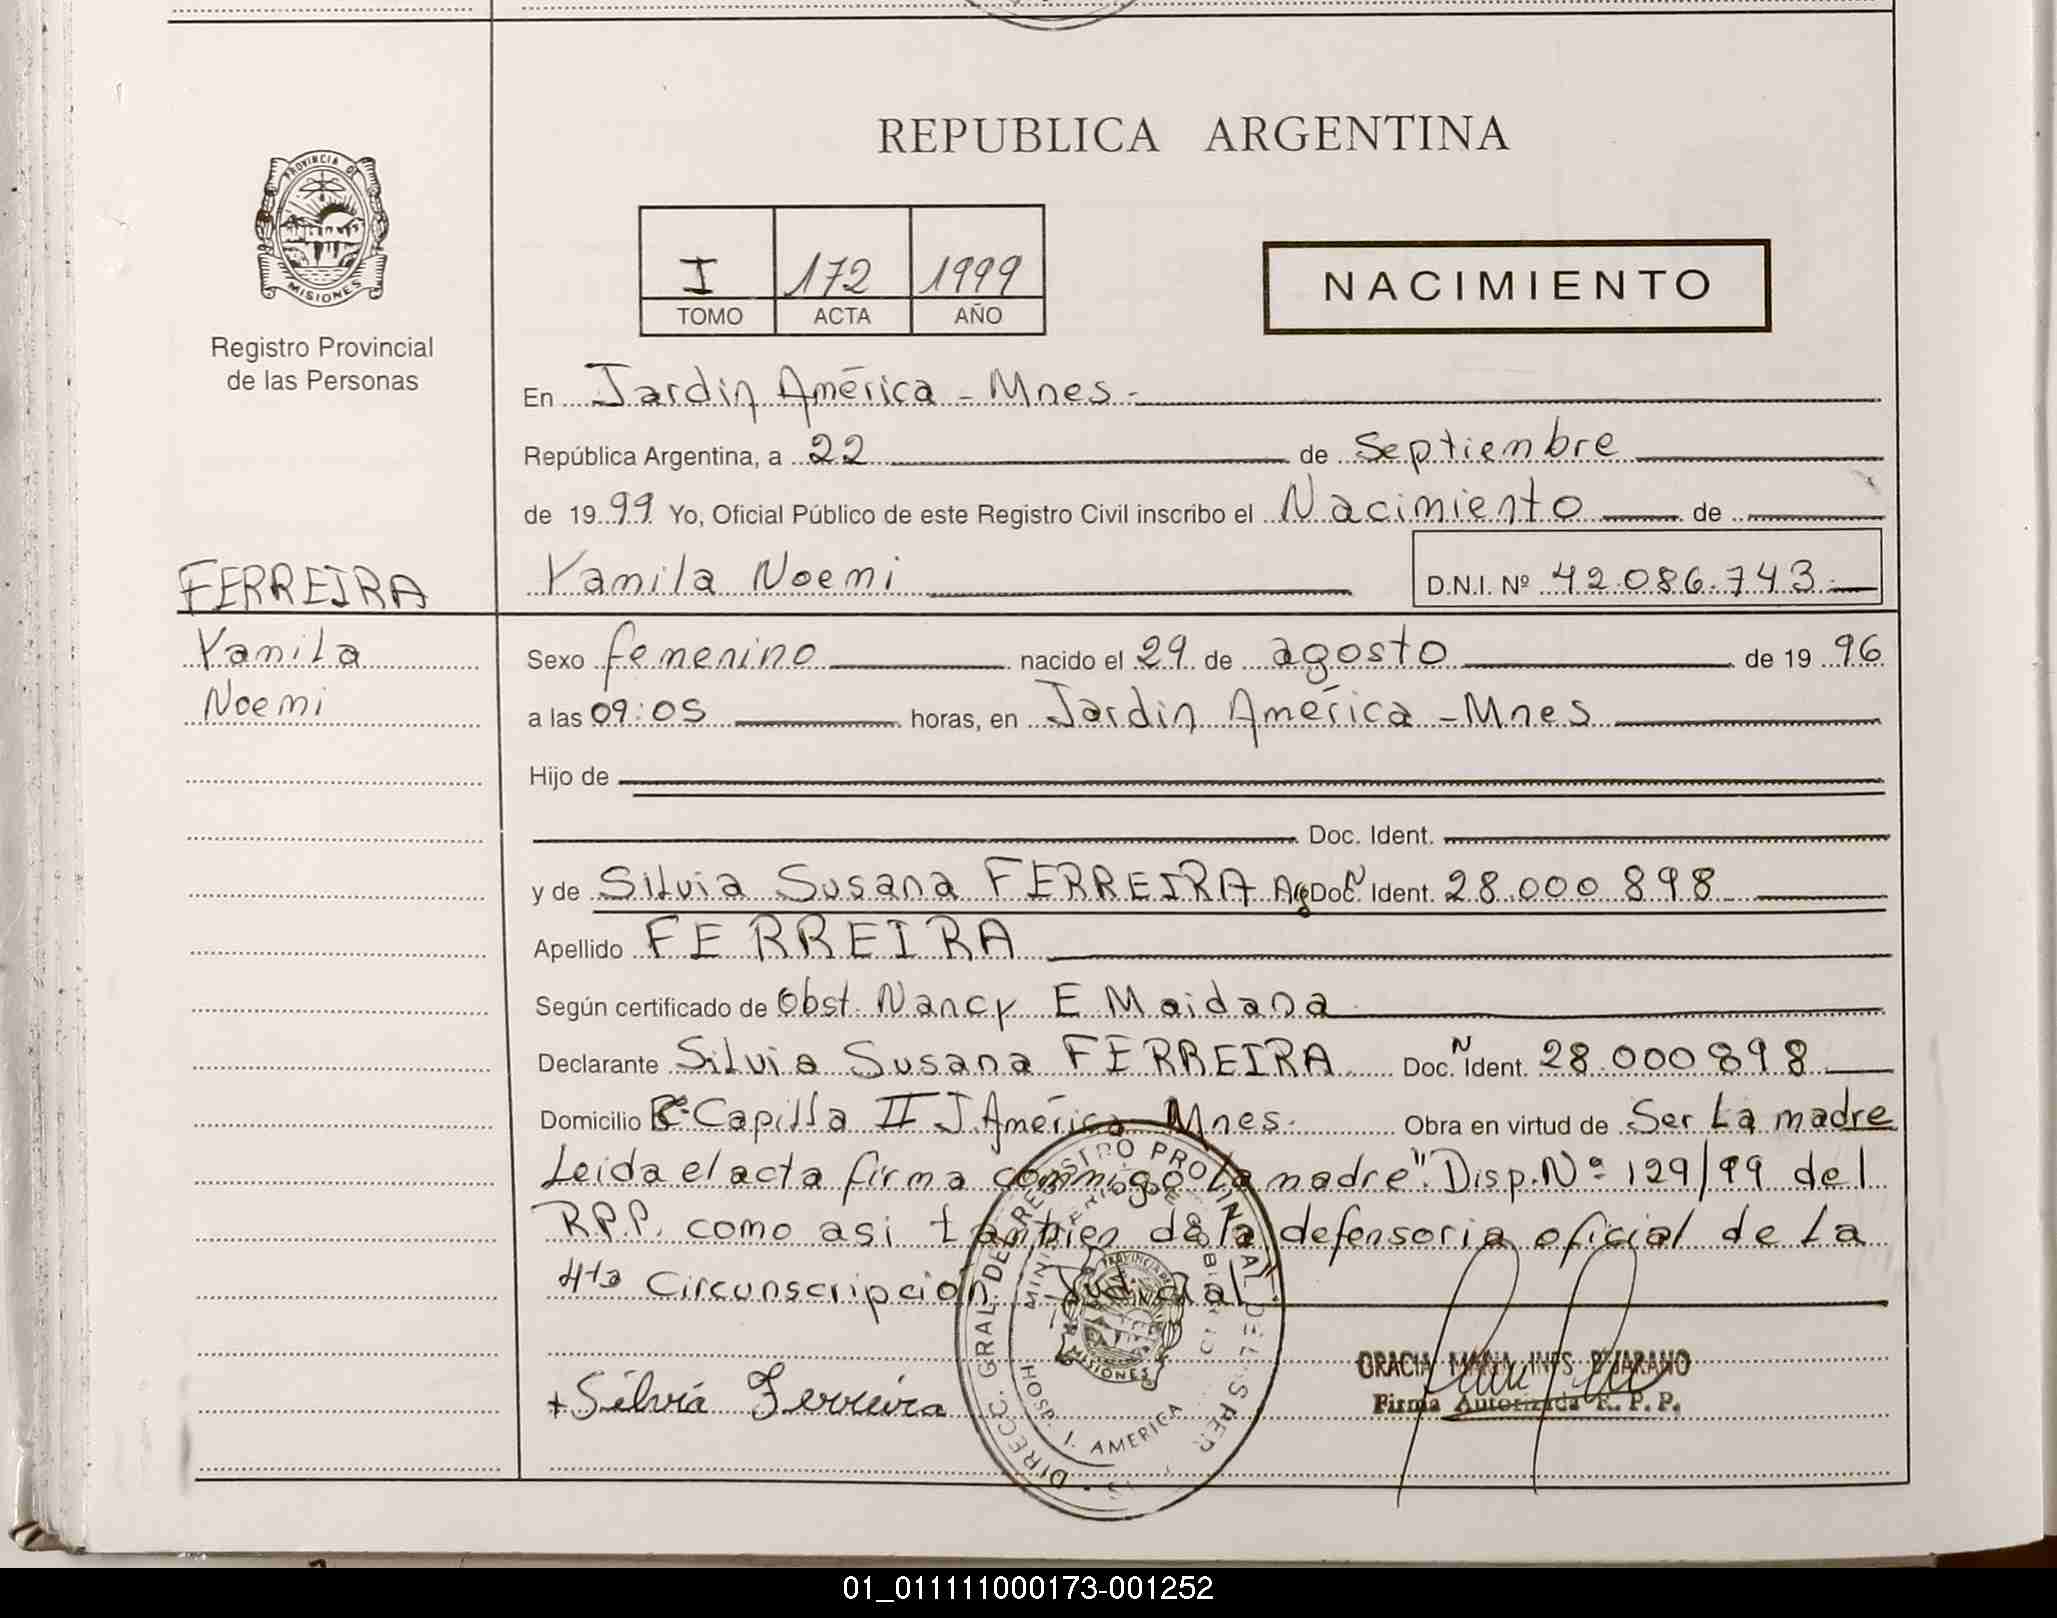 REPUBLICA ARGENTINA
PROVINCIA DE
MISIONES
Registro Provincial
de las Personas
I 172 1999
TOMO ACTA AÑO
NACIMIENTO
En Jardin América - Mnes -
República Argentina, a 22 de Septiembre
de 1999 Yo, Oficial Público de este Registro Civil inscribo el Nacimiento de
FERREIRA
Yamila Noemi
D.N.I. Nº 42.086.743.
Yamila
Noemi
Sexo femenino nacido el 29 de agosto de 1996
a las 09:05 horas, en Jardin América - Mnes
Hijo de
Doc. Ident.
y de Silvia Susana FERREIRA Arg Doc. N Ident. 28.000.898
Apellido FERREIRA
Según certificado de Obst. Nancy E Maidana
Declarante Silvia Susana FERREIRA Doc. N Ident. 28.000898
Domicilio Capilla II J. América Mnes. Obra en virtud de Ser La madre
Leida el acta firma conmigo la madre". Disp. Nº 129/99 del
R.P.P. como asi tambien de la defensoria oficial de La
4ta Circunscripción Judicial".
+ Silvia Ferreira
DIRECC. GRAL. DE REGISTRO PROVINCIAL DE L S PER
HOSP. J. AMERICA
PROVINCIA DE
MISIONES
GRACIA MARIA INES
Firma Autorizada R. P. P.
01_011111000173-001252